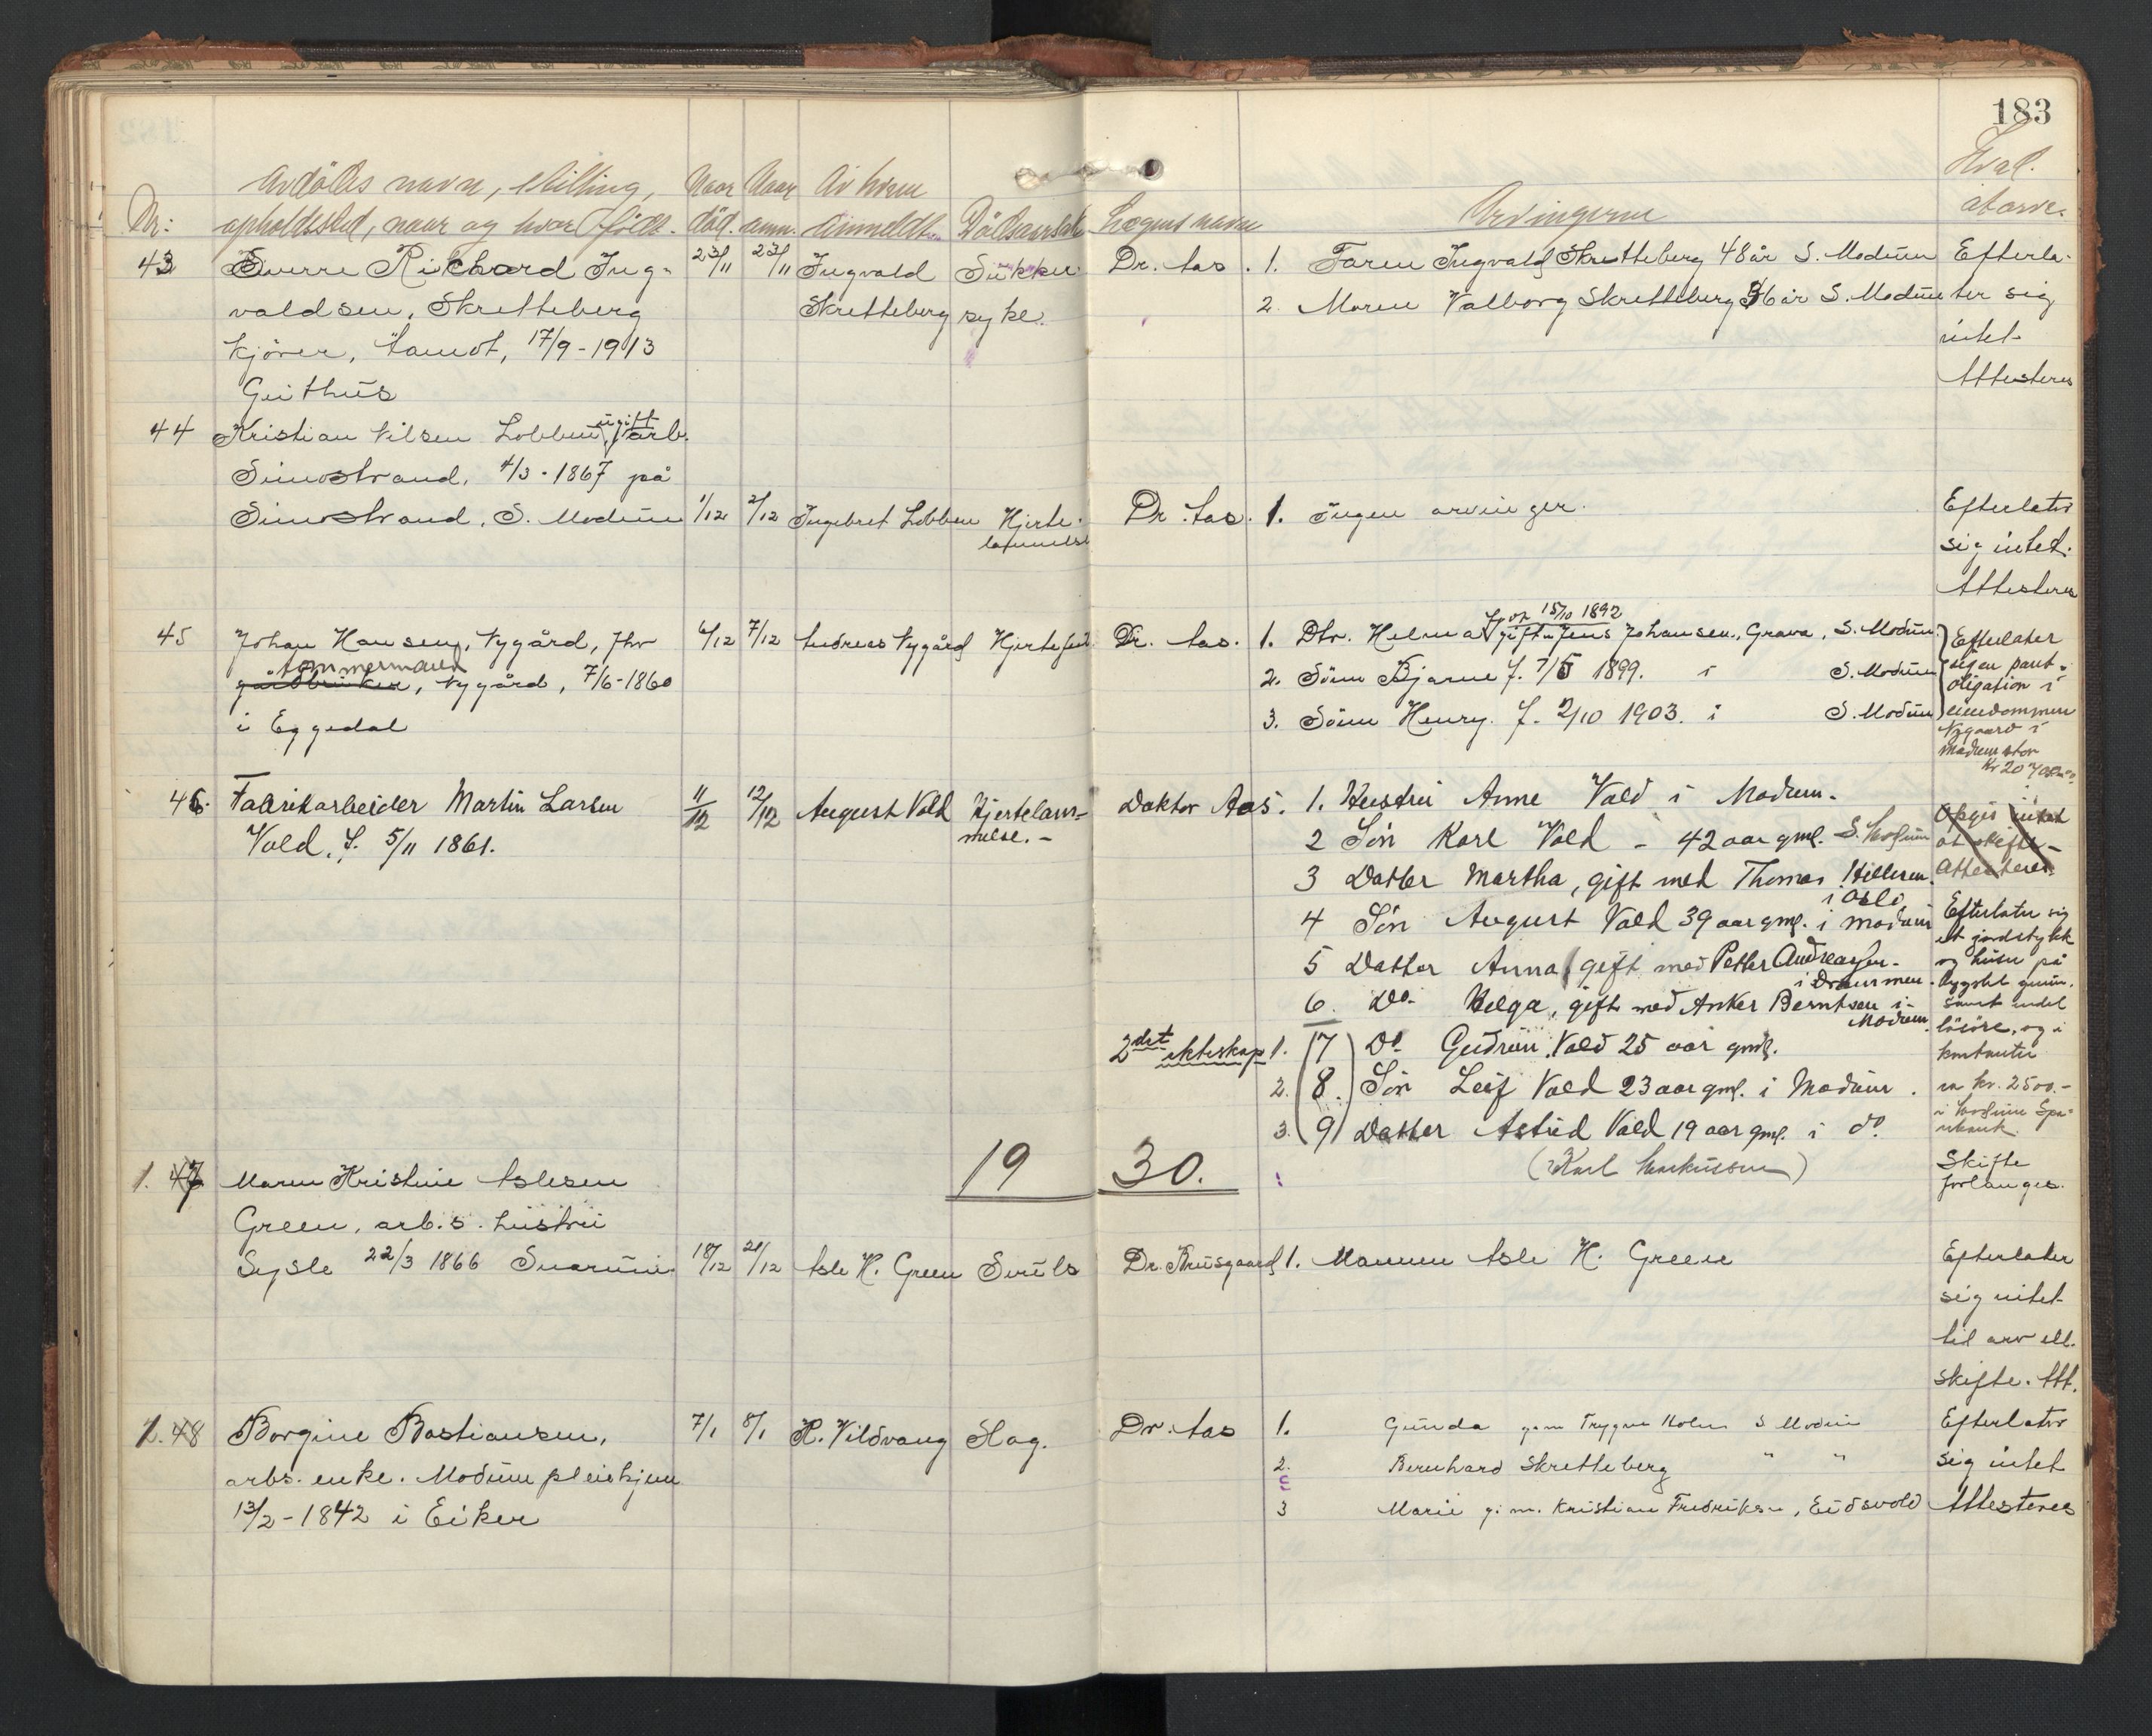 183
Nr: Avdödes navn, stilling, opholdssted, naar og hvor född. Naar död. Naar anm. Av hvem anmeldt. Dödsaarsak Lægens navn Arvingerne Hval. at arve.
43 Sverre Richard Ing- 23/11 23/11 Ingvald Sukker Dr. Aas. 1. Faren Ingvald Skretteberg 48 år S. Modum Efterla-
valdsen, Skretteberg Skretteberg syke. 2. Moren Valborg Skretteberg 36 år S. Modum ter sig
kjörer, Åamot, 17/9-1913 intet
Geithus Attesteres
44 Kristian Nilsen Lobben, ugift arb.
Simostrand, 4/3-1867 på
Simostrand, S. Modum 1/12 2/12 Ingebret Lobben Hjerte- Dr. Aas. 1. Ingen arvinger. Efterlater
lammelse sig intet.
Attesteres
45 Johan Hansen, Nygård, fhv 6/12 7/12 Andreas Nygård Hjertefeil Dr. Aas. 1. Dtr. Helma f. 15/10 1892 gift m Jens Johansen, Grava, S. Modum Efterlater
tømmermann
gårdbruker, Nygård, 7/6-1860 2. Sönn Bjarne f. 7/5 1899. i S. Modum sig en pant-
obligation i
i Eggedal 3. Sönn Henry. f. 2/10 1903. i S. Modum eiendommen
Nygaard i
Modum stor
46. Fabrikarbeider Martin Larsen 11/12 12/12 August Vold Hjertelam- Doktor Aas. 1. Hustru Anne Vold i Modum. Opgis intet
Vold, f. 5/11 1861. melse. - 2 Sön Karl Vold - 42 aar gml. S. Modum at skifte -
3 Datter Martha, gift med Thomas Hillesen i Oslo Attesteres.
4 Sön August Vold 39 aar gml. i Modum Efterlater sig
et jordstykke
5 Datter Anna gift med Petter Andreassen i Drammen og huse på
bygslet grunn,
6. Do. Helga, gift med Anker Berntsen i Modum samt endel
lösöre, og i
2det ekteskap 1. (7) Do Gudrun Vold 25 aar gml. kontanter
2. (8.) Sön Leif Vold 23 aar gml. i Modum. ca kr. 2500.-
3. (9) Datter Astrid Vold 19 aar gml. i do. i Modum Spa-
rebank.
19 30. (Karl Markussen) Skifte
forlanges.
1. 47 Maren Kristine Aslesen
Green, arb.s. hustru
Sysle 22/3 1866 Snarum 18/12 20/12 Asle H. Green Svulst Dr. Krusgaard 1. Mannen Asle H. Green Efterlater
sig intet
til arv ell.
skifte. Att.
2. 48 Borgine Bastiansen, 7/1 8/1 H. Vildvang Slag. Dr. Aas 1. Gunda g.m. Trygve Holm S Modum Efterlater
arbs. enke. Modum pleiehjem 2. Bernhard Skretteberg " " sig intet
13/2-1842 i Eiker 3 Marie g.m. Kristian Fredriksen, Eidsvold Attesteres